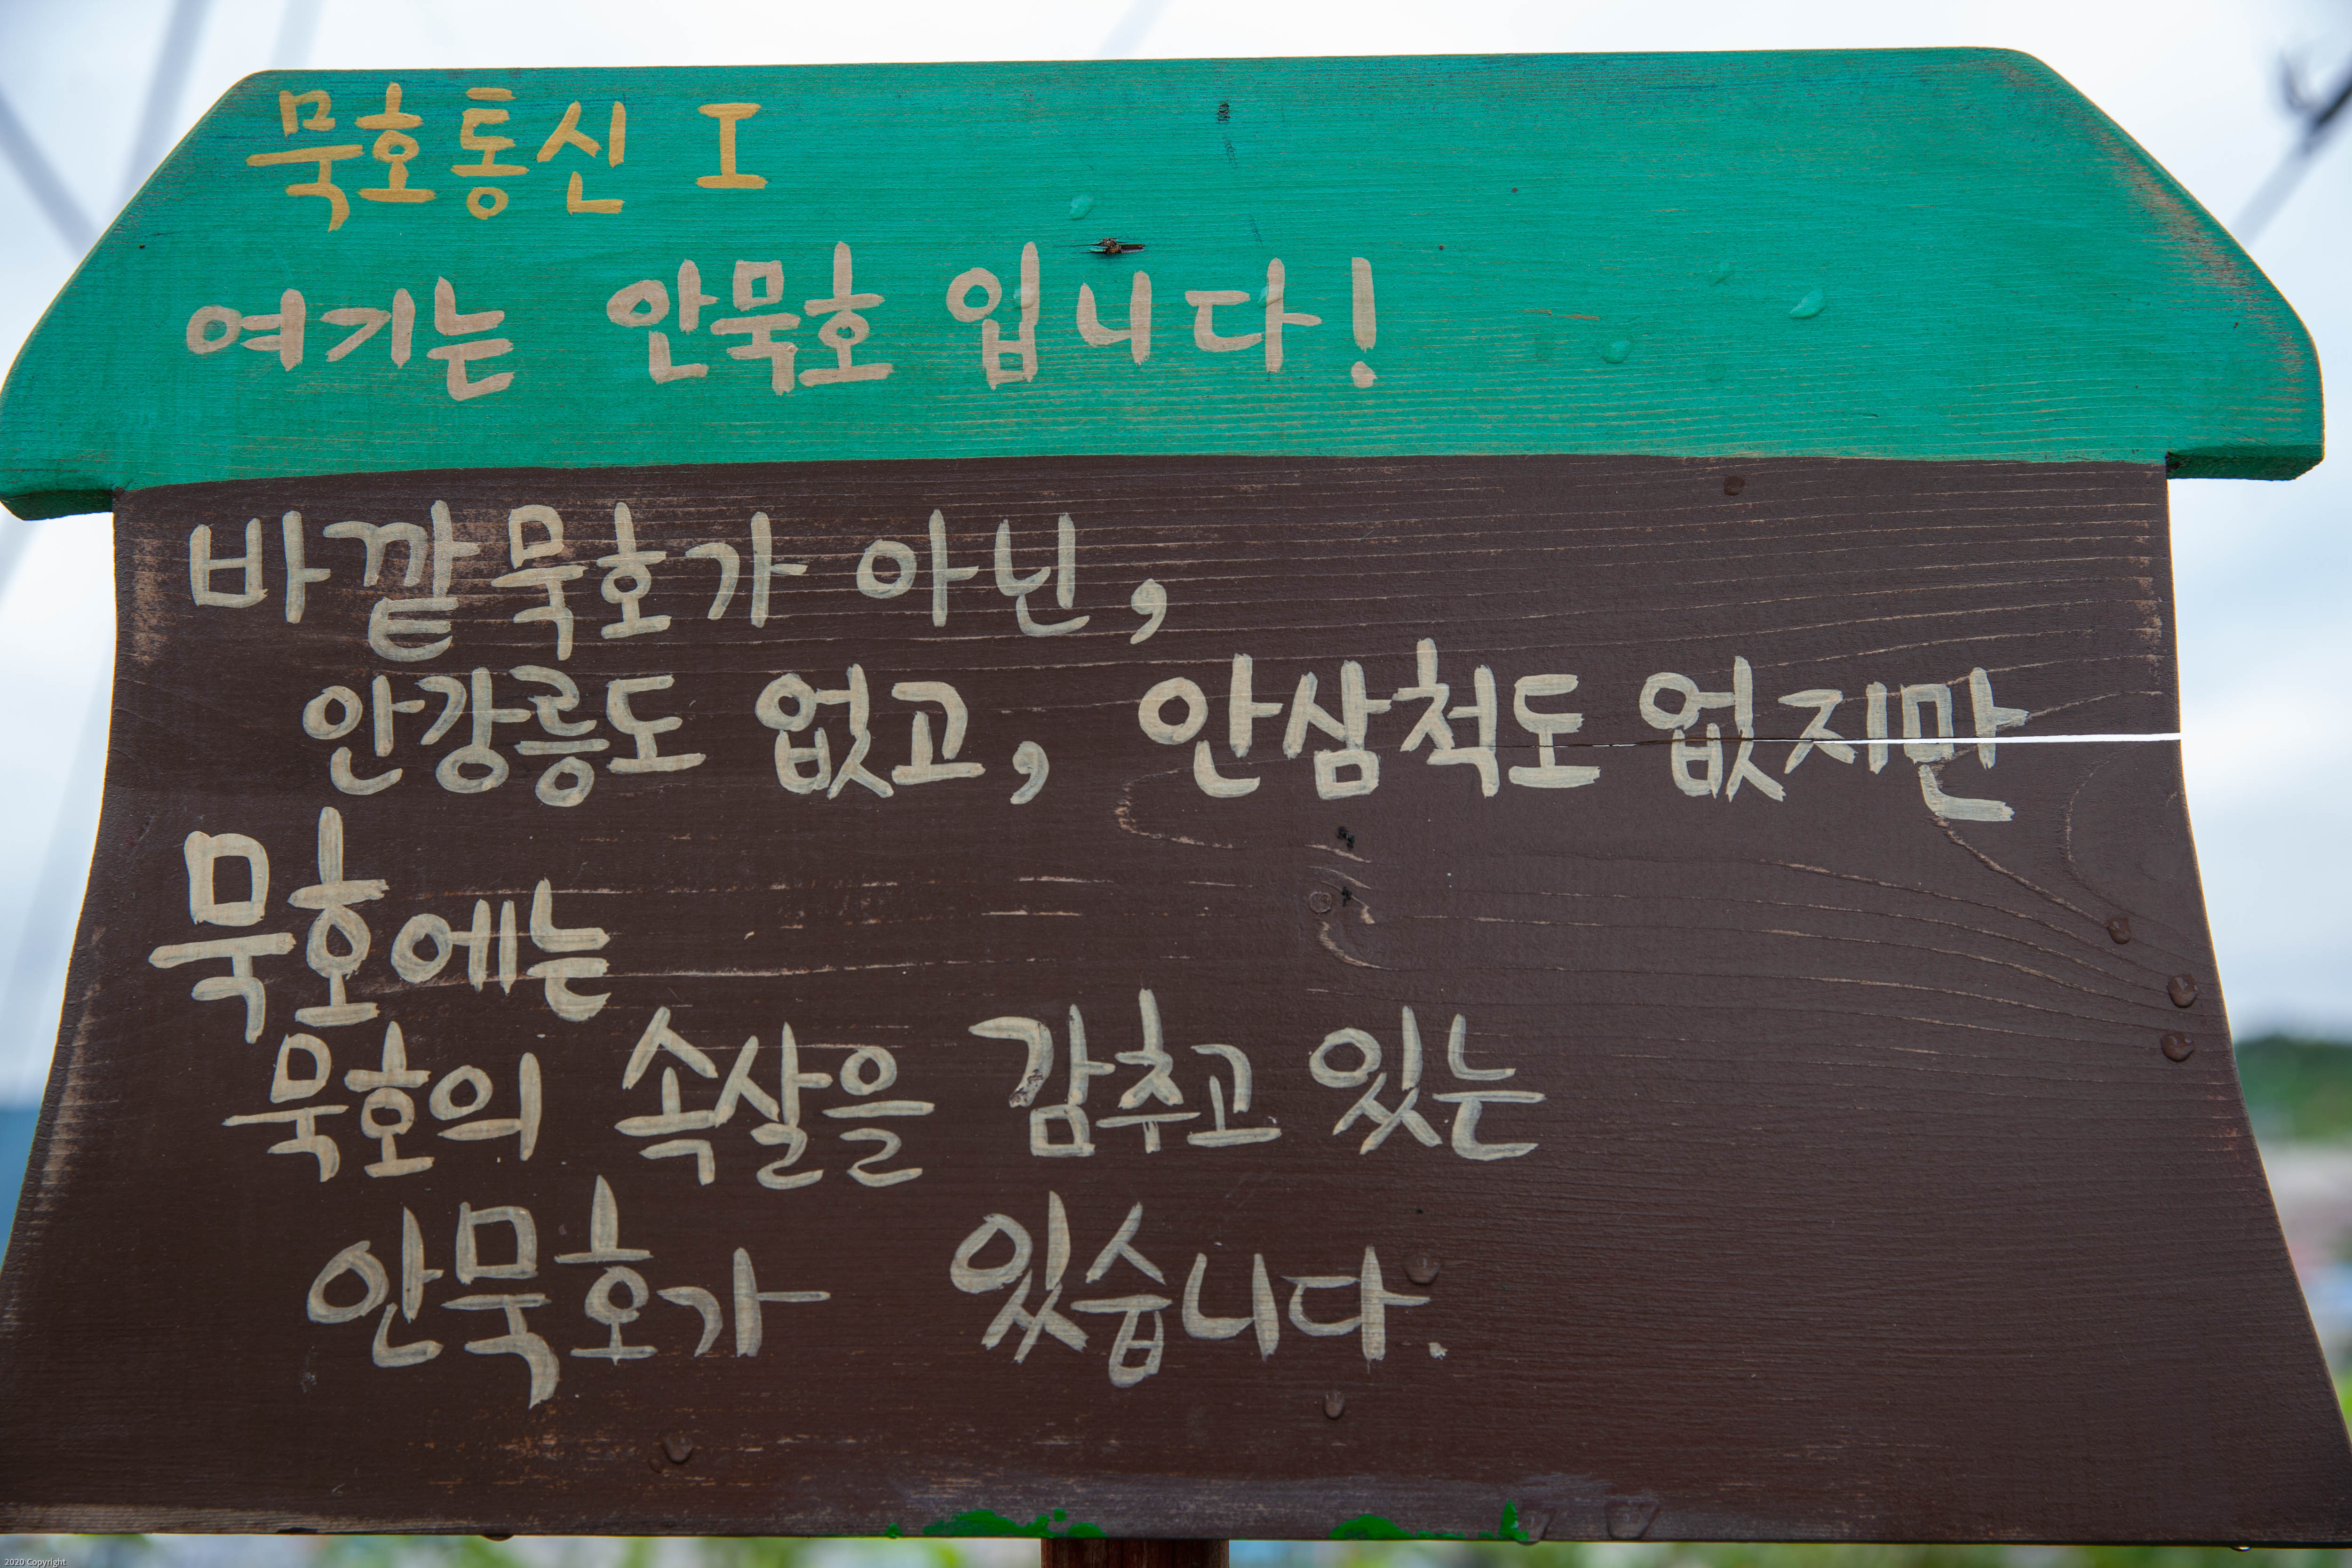 묵호통신 I
여기는 안묵호 입니다!
바깥묵호가 아닌,
안강릉도 없고, 안삼척도 없지만
묵호에는
묵호의 속살을 감추고 있는
안묵호가 있습니다.
2020 Copyright